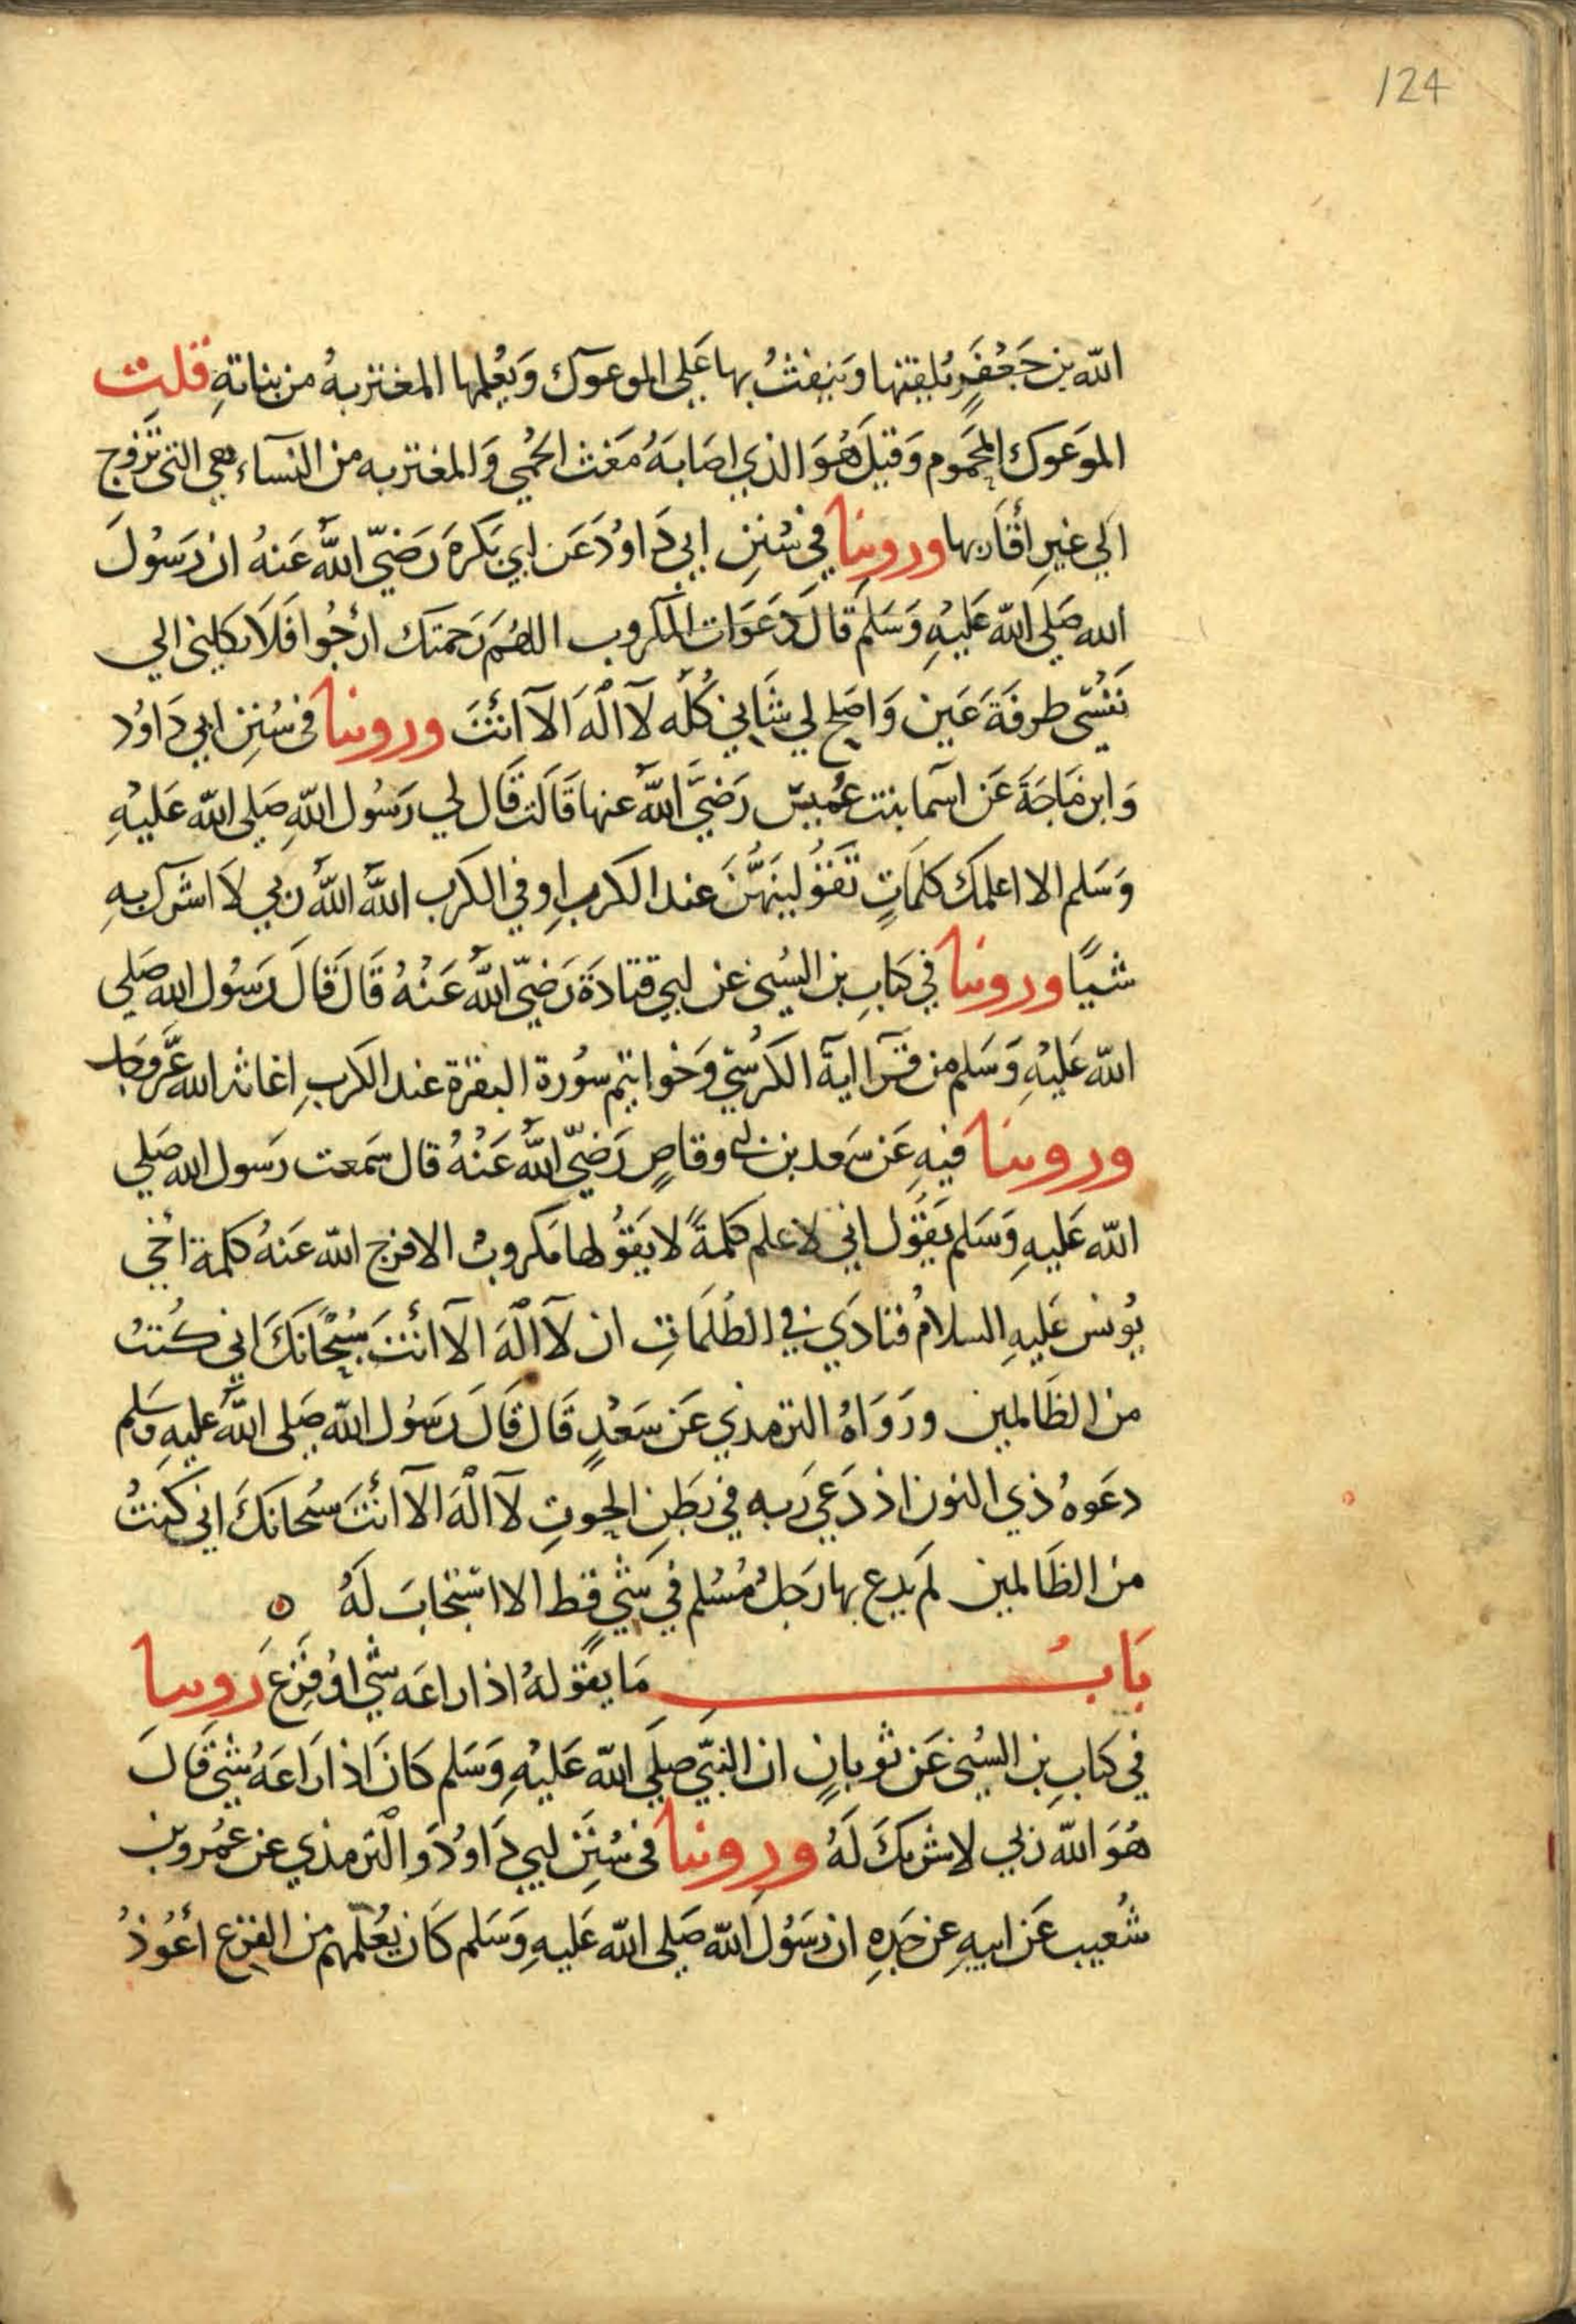 124
الله بن جَعْفَرٍ يُلقِنها وَيَنِفثُ بها عَلي الموعوك وَيُعْلمها المغتربهُ من بناتهِ قلت
الموَعَوك المحَمُوم وَقيلَ هُوَ الذي اصَابَهُ مَغث الحُمي وَالمغتربه من النسآء هي التي تَزوج
الي غيرِ أقارَبها وروينا في سُنَنِ ابي دَاوُدَ عَن ابي بَكرَهَ رَضيّ اللهُ عَنهُ ان رَسُولَ
الله صَلي الله عَليهِ وَسَلم قالَ دَعَوَات المكروب اللهُمَ رَحمتك ارْجُوا فَلاَ تكلِني الي
نَفسْي طرفَةَ عَين وَاصَلح لي شَاني كُله لآ الَهَ الآ أنتَ وروينا في سُنَنِ ابي دَاوُد
وَابن مَاجَةَ عَن اسَما بنت عُميس رَضيَ اللهُ عنها قَالَت قَال لي رَسُول اللهِ صَلي الله عَليْهِ
وَسَلم الا اعلمك كلمَاتٍ تَقُولينَهُنَ عند الكرب اوِ في الكرَب اللهُ اللهُ ربي لاَ اشرك بهِ
شيًا وروينا في كتابِ بن السُني عن ابي قتادَةَ رَضيّ اللهُ عَنْهُ قَال قَالَ رَسُول الله صَلي
الله عَليْهِ وَسَلم من قرَا ايَةَ الكُرسْي وَخواتيم سوُرة البقرة عند الكربِ اغاثه الله عَزَّ وجَل
وروينا فيهِ عَن سَعد بن ابي وقاصٍ رَضيّ اللهُ عَنْهُ قال سَمعت رَسول الله صَلي
الله عَليهِ وَسَلم يَقُول اني لاعلم كلمةً لا يَقوُلها مَكروبٌ الا فرج الله عَنهُ كلمة أخي
يوُنس عَليهِ السلامُ فنادَي في الظُلمَاتِ ان لآ الَهَ الآ أنتَ سُبْحَانكَ اني كُنتُ
من الظَالمين ورَوَاهُ الترمذي عَن سَعْدٍ قَال قَالَ رَسُول الله صَلي اللهُ عليهِ وسَلم
دعَوهُ ذي النون اذ دَعَي رَبه في بَطنِ الحوُتِ لآ الَهَ الآ أنتَ سُبحانكَ اني كنتُ
من الظَالمين لم يدع بها رَجلٌ مُسْلم في شي قط الا استجَابَ لَهُ
بَابُ مَا يقوُلهُ اذا راعَه شي اوْ فَزِعَ رَوينا
في كتابِ بن السُني عَن ثوبانٍ ان النبيّ صَلي الله عَليْهِ وَسَلم كانَ اذا رَاعَهُ شي قَالَ
هُوَ الله ربي لا شريكَ لَهُ وروينا في سُنَنِ ابي دَاوُدَ والترمذي عن عمُروبن
شُعيب عَن ابيهِ عن جَدهِ ان رَسُولَ الله صَلي الله عَليهِ وَسَلم كاَن يُعُلمهم من الفزعِ أعُوذُ